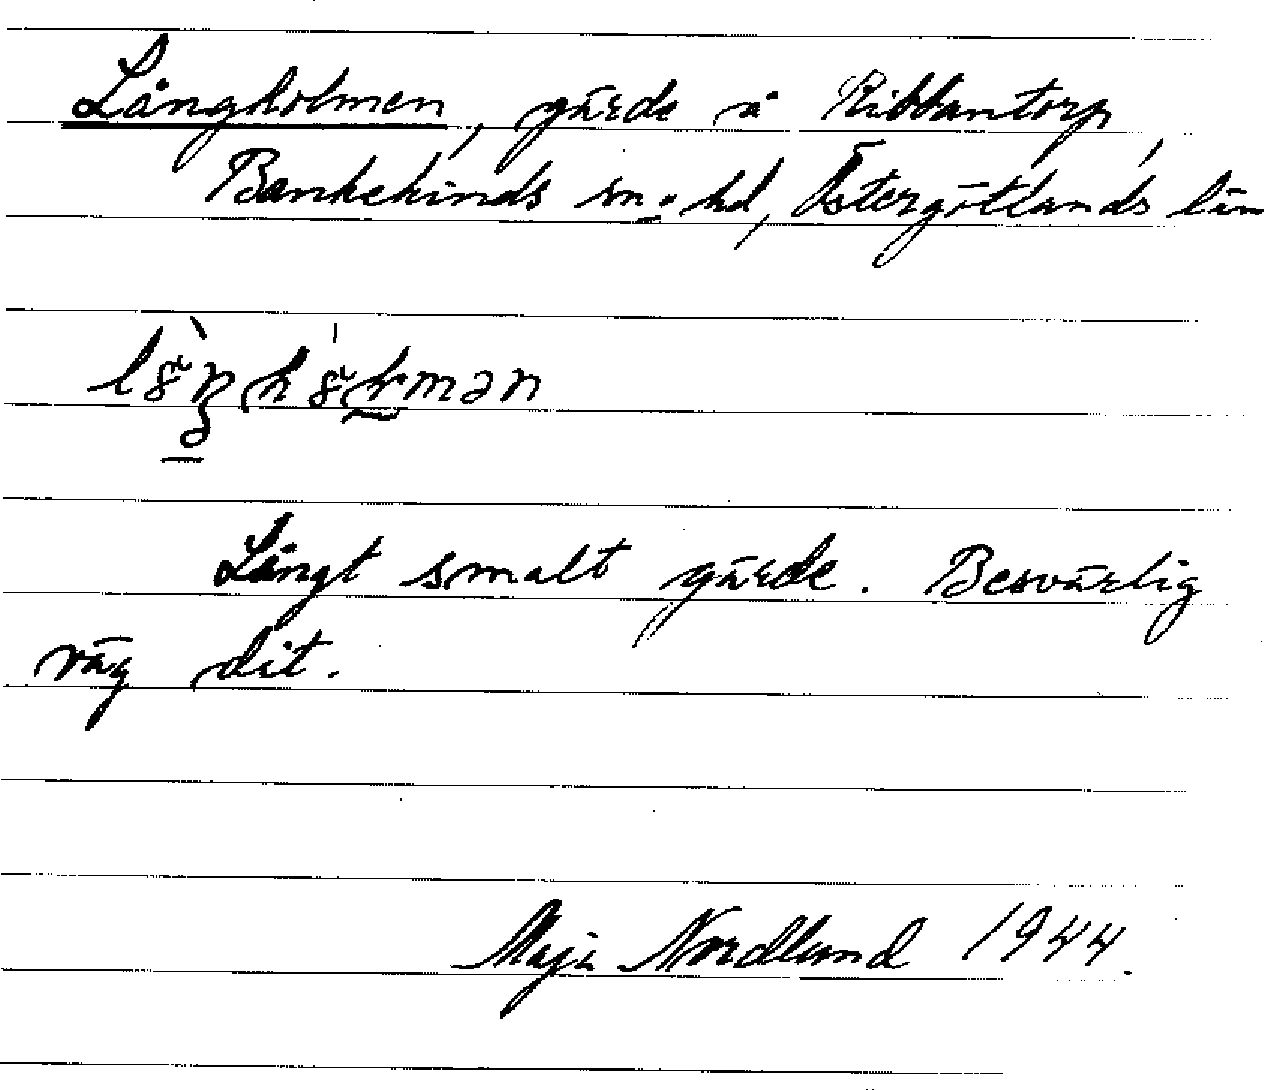 Långholmen, gärde å Ribbantorp,
Bankekinds sn o hd, Östergötlands län
Långt smalt gärde. Besvärlig
väg dit.
Maja Nordlund 1944.